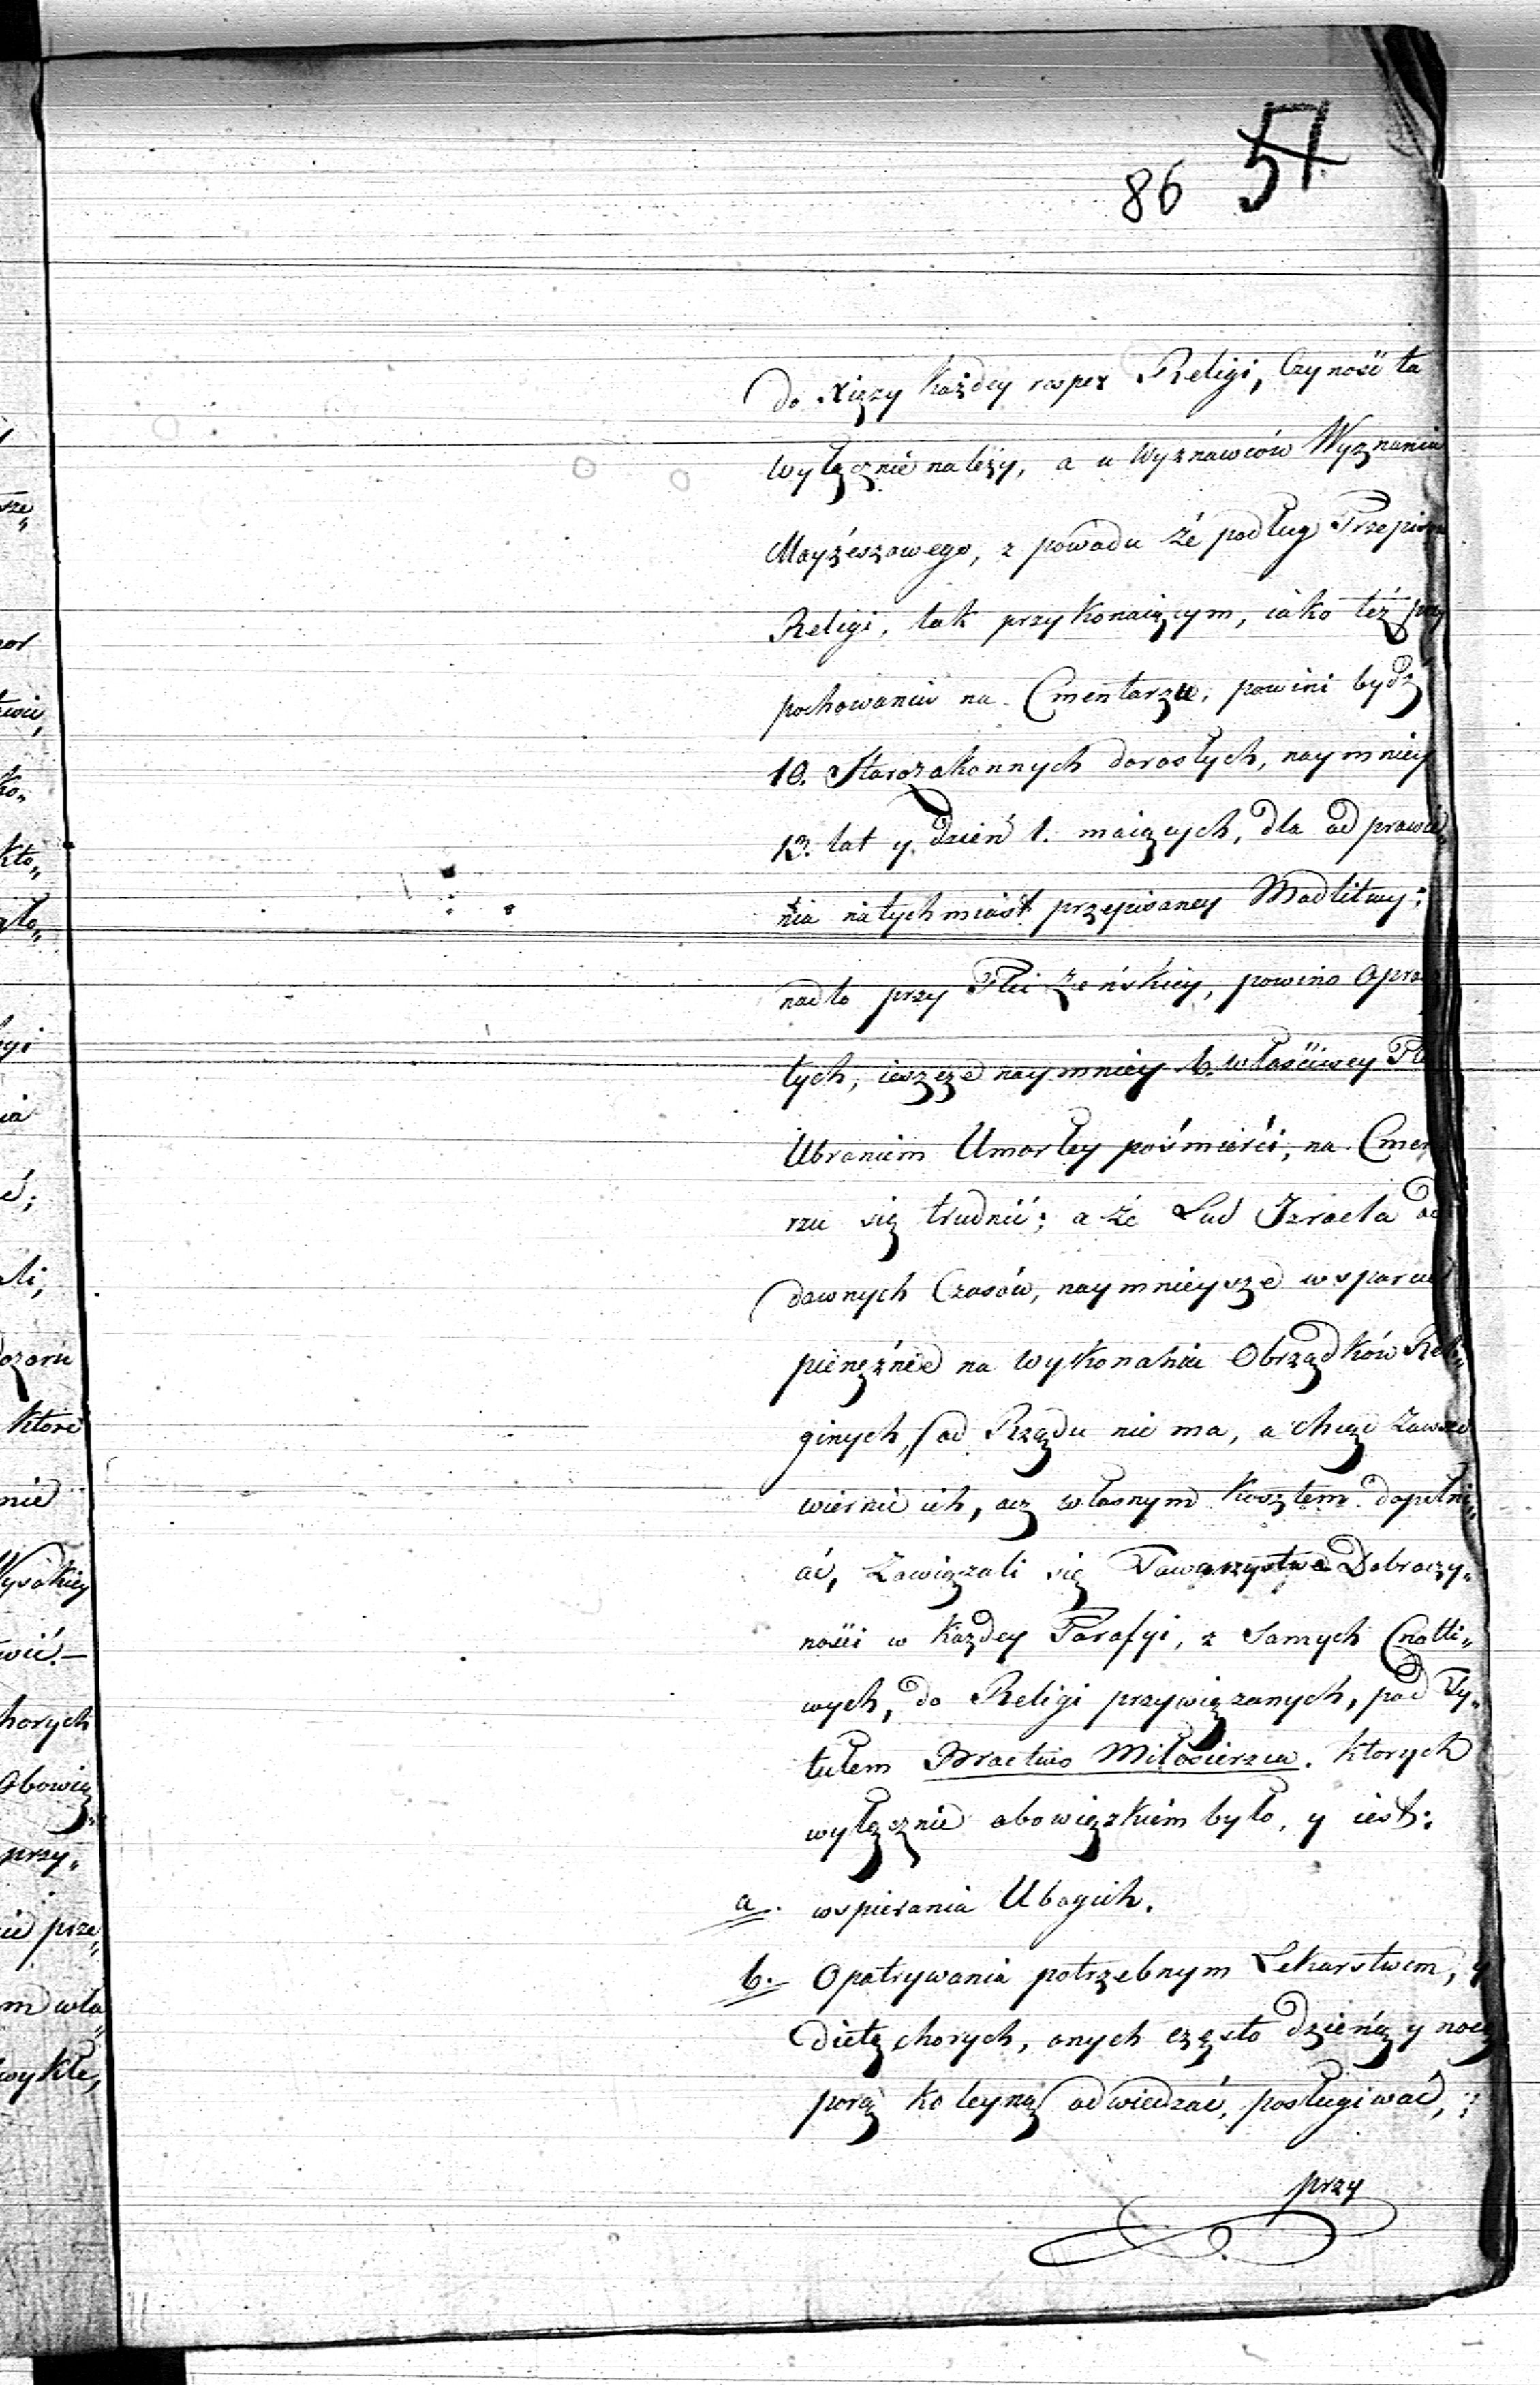 86 57
do Xięży każdey respex Religi, Czyność ta
wyłącznie należy, a u Wyznawców Wyznania
Mayżeszowego, z powodu że podług Przepisu
Religi, tak przy konaiącym, iako też przy
pochowaniu na Cmentarzu, powini bydź
10. Starozakonnych dorosłych, naymniey
13. lat y dzień 1. maiących, dla odprawie„
nia natychmiast przepisaney Modlitwy;
nadto przy Płci Żeńskiey, powino opro
tych, ieszcze naymniey 6. właściwey Płc
Ubraniem Umarłey pośmierci, na Cmen
rzu się trudnić; a że Lud Izraela od
dawnych Czasów, naymnieysze wsparcie
pienężne na wykonania Obrządków Reli„
ginych, od Rządu nie ma, a chcąc zawsze
wiernie ich, acz własnym kosztem dopełni„
ać, Zawiązali się Towarzystwa Dobroczy„
ności w każdey Parafyi, z samych Cnotli„
wych, do Religi przywiązanych, pod Ty„
tułem Bractwo Miłosierzia. ktorych
wyłącznie obowiązkiem było, y iest:
a. wspierania Ubogich.
b. Opatrywania potrzebnym Lekarstwem, y
dietą chorych, onych często dzieńą y nocą
porą koleyną odwiedzać, posługiwać, :
przy